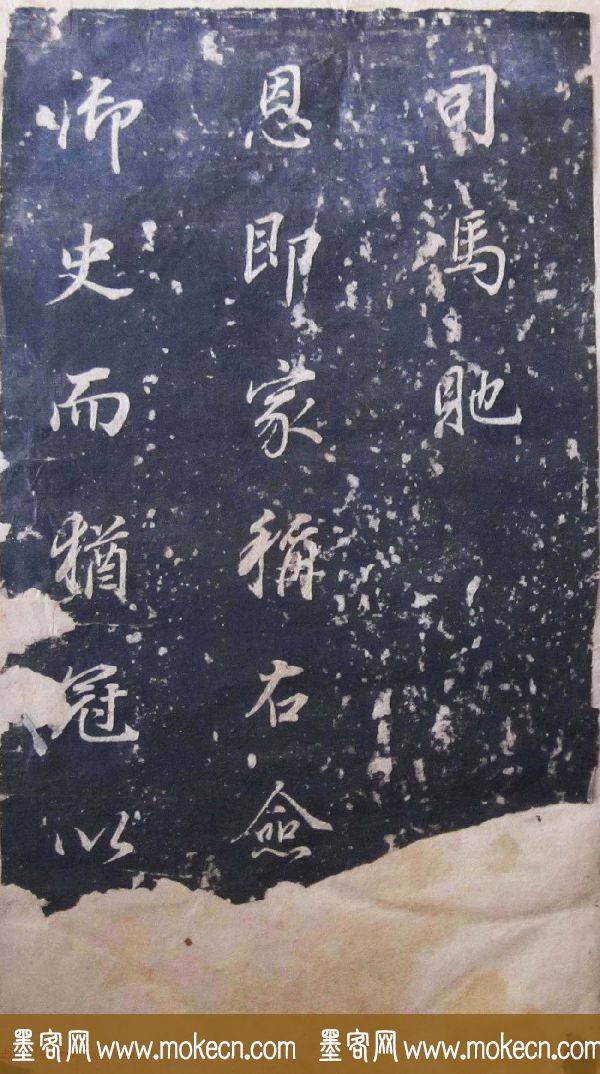 司馬貤
恩即家稱右僉
御史而猶冠以
墨客网 www.mokecn.com 墨客网 www.mokecn.com